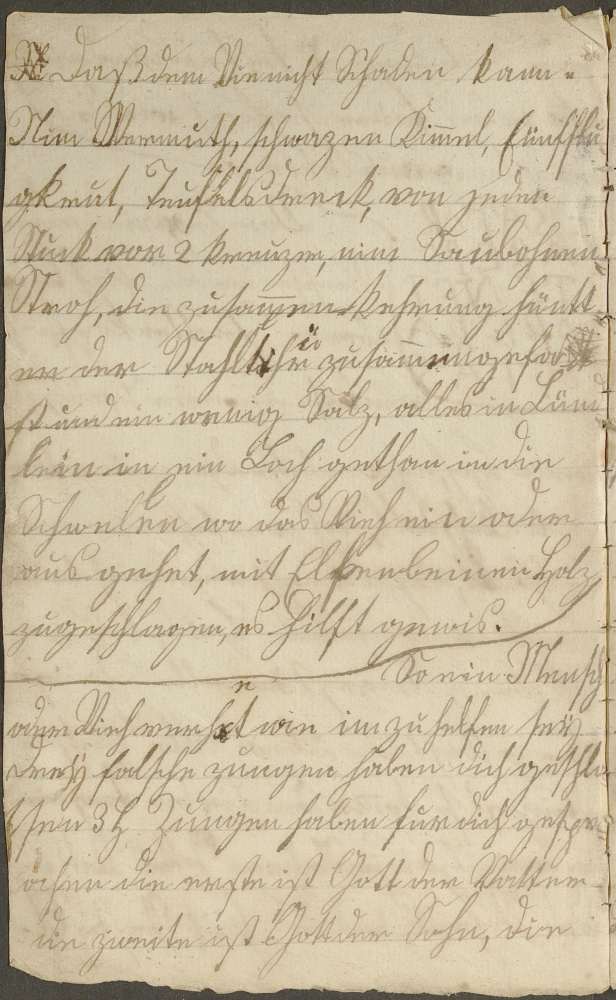 Daß dem Vie nicht Schaden kann.
Nim Wermuth, schwarzen Kimmel, Fünffin
gkraut, Teufelsdreck, von jeden
Stuck vor 2 Kreuzer, nim Saubohnen
Stroh, die zusammen Kehrung hüntt
er der Stahlthür zusammengefas
st und ein wenig Salz, alles in Lüm
lein in ein Loch gethan in die
Schwelen wo das Vieh ein oder
aus gehet, mit Elfenbeinen Holz
zugeschlagen, es hilft gewis.
So ein Mensch
oder Vieh verhext wie im zu helfen sey
Drey falsche zungen haben dich geschlo
ssen 3 H Zungen haben fur dich gespr
ochen die erste ist Gott der Vatter
die zweite ist Gott der Sohn, die